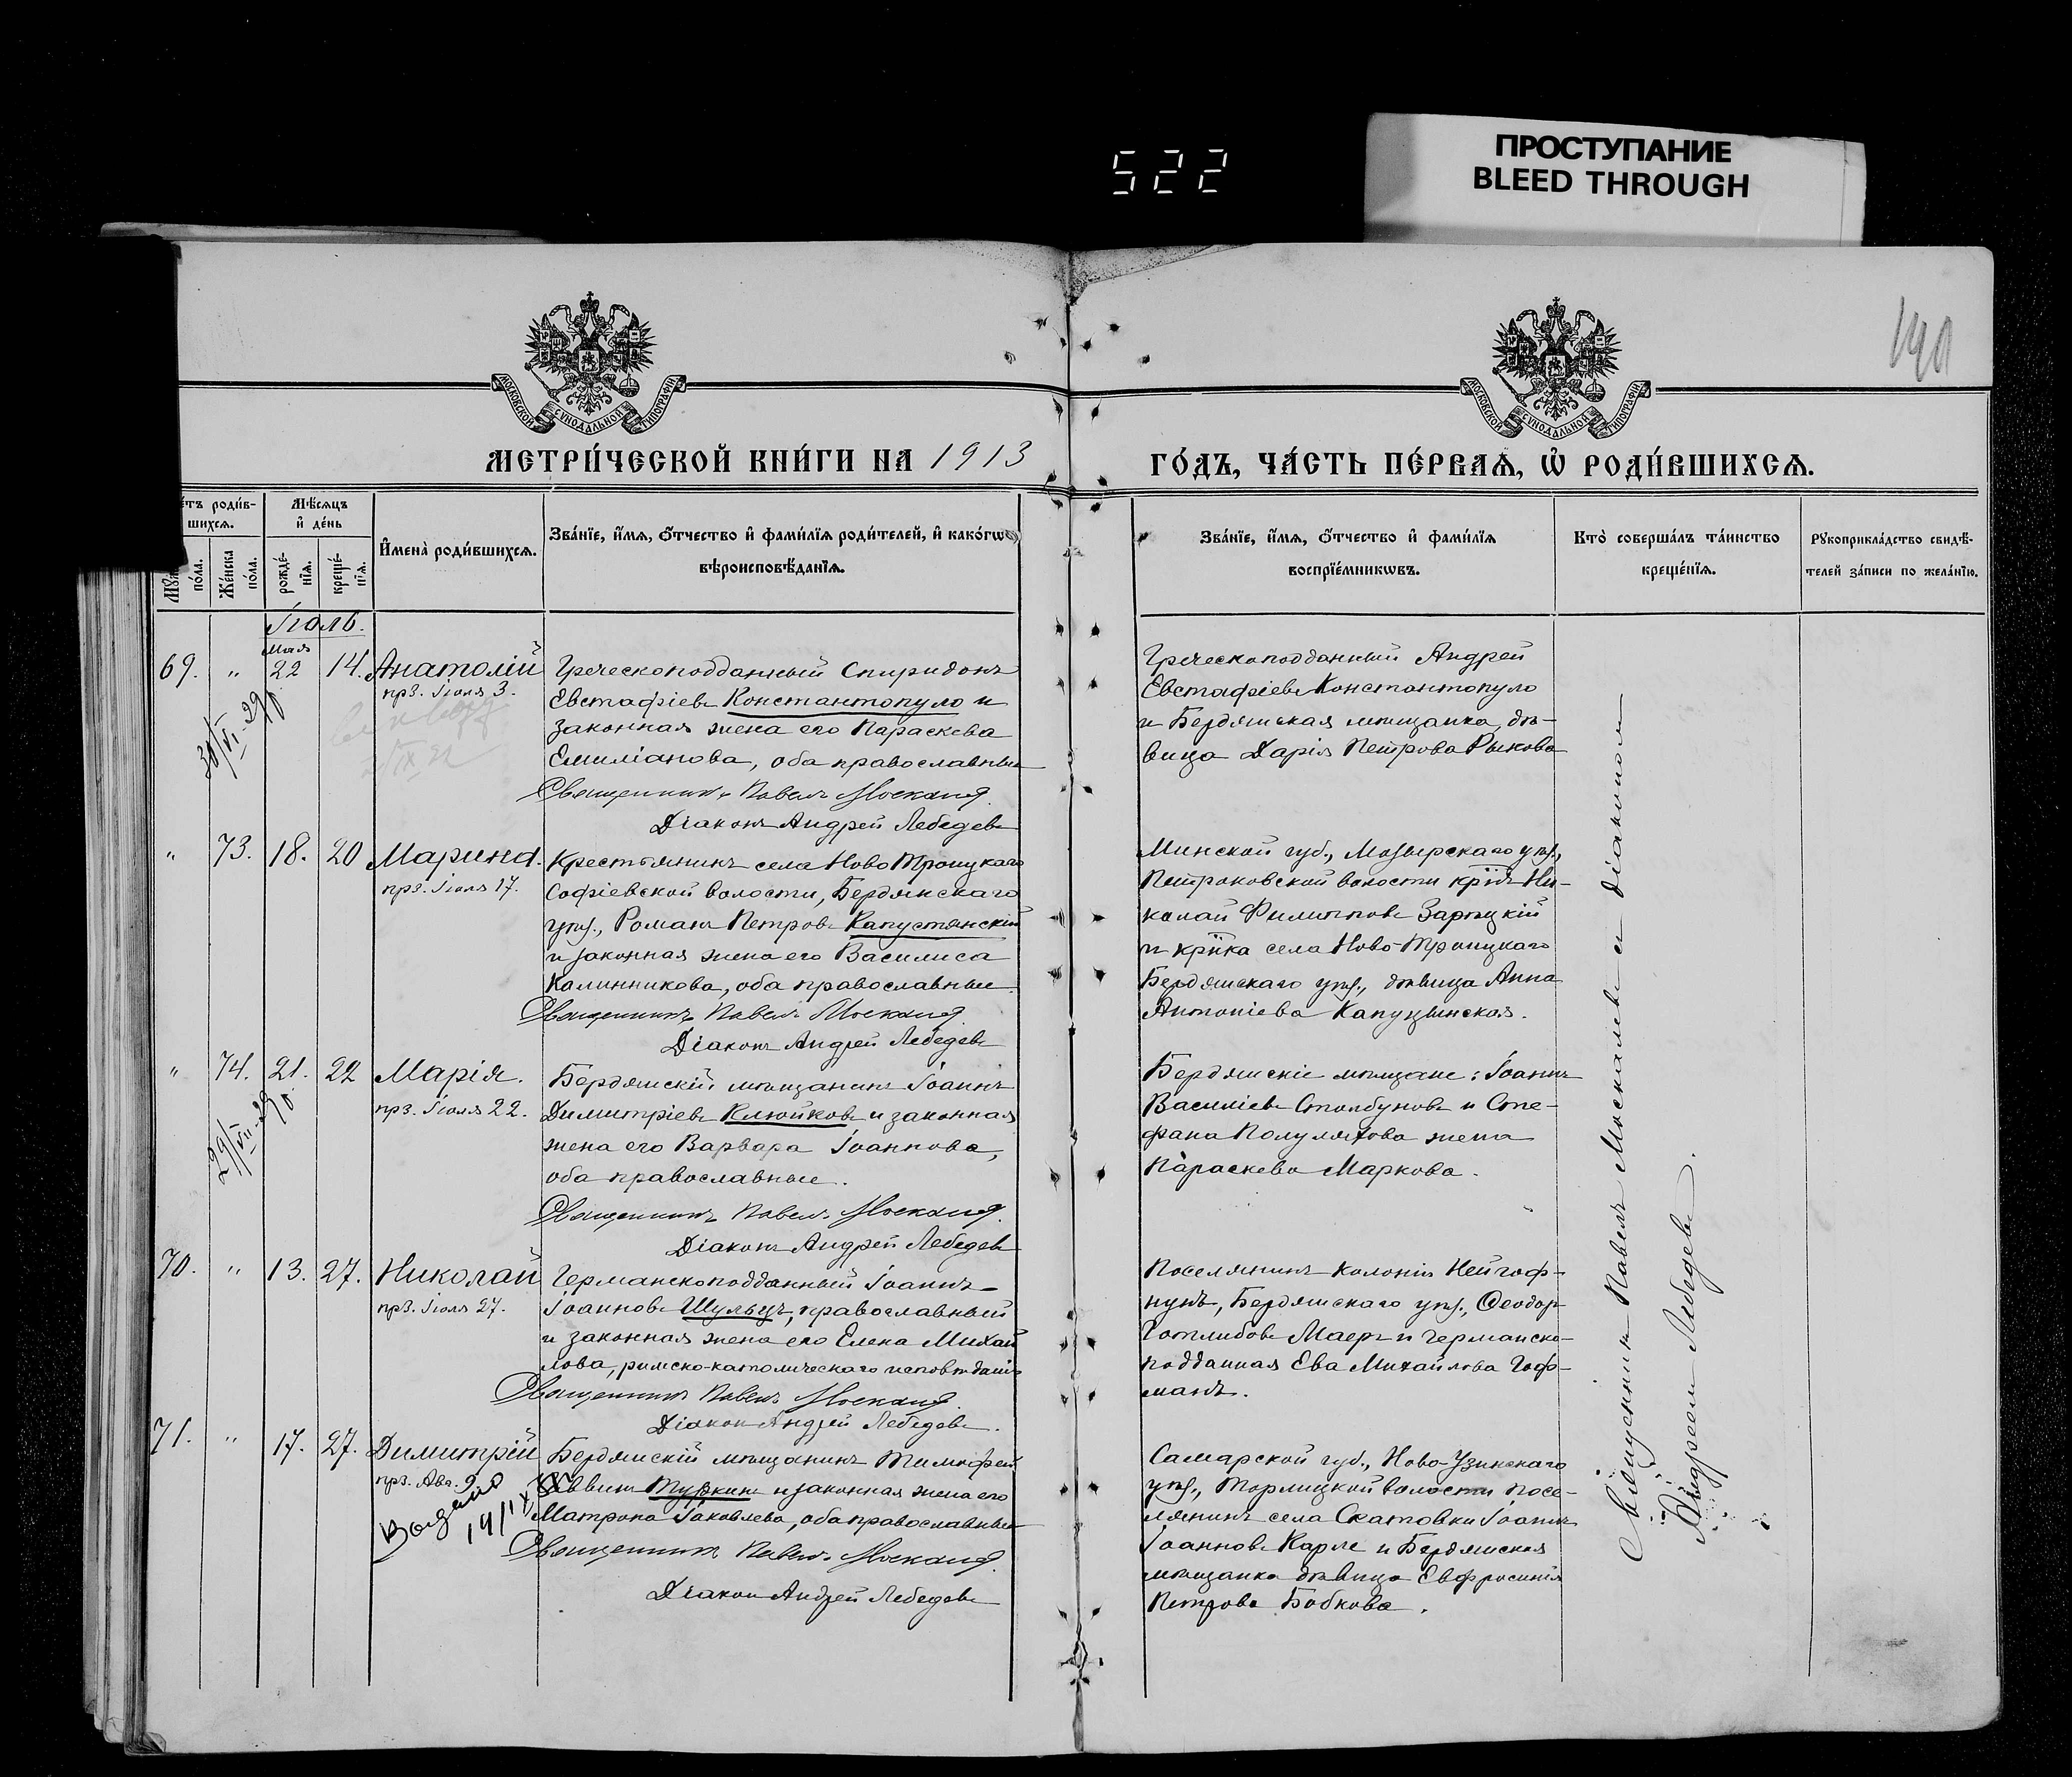 522
ПРОСТУПАНИЕ
BLEED THROUGH
МОСКОВСКОЙ СѴНОДАЛЬНОЙ ТИПОГРАФІИ
МОСКОВСКОЙ СѴНОДАЛЬНОЙ ТИПОГРАФІИ
МЕТРИ́ЧЕСКОЙ КНИ́ГИ НА 1913
ГО́ДЪ, ЧА́СТЬ ПЕ́РВАѦ, Ѡ҆ РОДИ́ВШИХСѦ.
родив-
шихсѧ.
Мѣ́сѧцъ
и҆ де́нь
Же́нска
по́ла.
рожде́-
нїѧ.
креще́-
нїѧ.
И҆мена̀ роди́вшихсѧ.
Зва́нїе, и҆́мѧ, ѻ҆́тчество и҆ фами́лїѧ роди́телей, и҆ како́гѡ
вѣроисповѣ́данїѧ.
Зва́нїе, и҆́мѧ, ѻ҆́тчество и҆ фами́лїѧ
воспрїе́мникѡвъ.
Кто̀ соверша́лъ та́инство
креще́нїѧ.
Рꙋкоприкла́дство свидѣ́-
телей за́писи по жела́нїю.
Іюль.
мая
69. " 22 14. Анатолій
прз. Іюля 3.
Греческоподданный Спиридонъ
Евстафіевъ Константопуло и
законная жена его Параскева
Емиліанова, оба православные
Священникъ Павелъ
Діаконъ Андрей Лебедевъ
Греческоподданный Андрей
Евстафіевъ Константопуло
и Бердянская мѣщанка дѣ-
вица Дарія Петрова Рыкова
" 73. 18. 20 Марина.
прз. Іюля 17.
Крестьянинъ села Ново Троицкаго
Софіевской волости, Бердянскаго
уѣз., Романъ Петровъ Капустянскій
и законная жена его Василиса
Калинникова, оба православные
Священникъ Павелъ
Діаконъ Андрей Лебедевъ
Минской губ., Мозырскаго уѣз.,
Петраковской волости крінъ Ни-
колай Филипповъ Зарѣцкій
и крїка села Ново-Троицкаго
Бердянскаго уѣз., дѣвица Анна
Антоніева
" 74. 21. 22 Марія.
прз. Іюля 22.
Бердянскій мѣщанинъ Іоаннъ
Димитріевъ Клюйковъ и законная
жена его Варвара Іоаннова,
оба православные.
Священникъ Павелъ
Діаконъ Андрей Лебедевъ
Бердянскіе мѣщане: Іоаннъ
Василіевъ Столбуновъ и Сте-
фана Полуляхова жена
Параскева Маркова.
70. " 13. 27. Николай
прз. Іюля 27.
Германскоподданный Іоаннъ
Іоанновъ Шульцъ, православный
и законная жена его Елена Михай
лова, римско-католическаго исповѣданія
Священникъ Павелъ
Діаконъ Андрей Лебедевъ.
Поселянинъ колоніи Нейгоф-
нунъ, Бердянскаго уѣз., Ѳеодоръ
Готлибовъ Маеръ и германско-
подданная Ева Михайлова Гоф-
манъ.
71. " 17. 27. Димитрій
прз. Авг. 9
Бердянскій мѣщанинъ Тимофей
Саввинъ и законная жена его
Матрона Іаковлева, оба православные
Священникъ Павелъ
Діаконъ Андрей Лебедевъ
Самарской губ., Ново-Узинскаго
уѣз., Торлицкой волости посе-
лянинъ села Скатовки Іоаннъ
Іоанновъ Карле и Бердянская
мѣщанка дѣвица Евфросинія
Петрова Бобкова.
Священникъ Павелъ Москалевъ съ діакономъ
Андреем Лебедевъ.